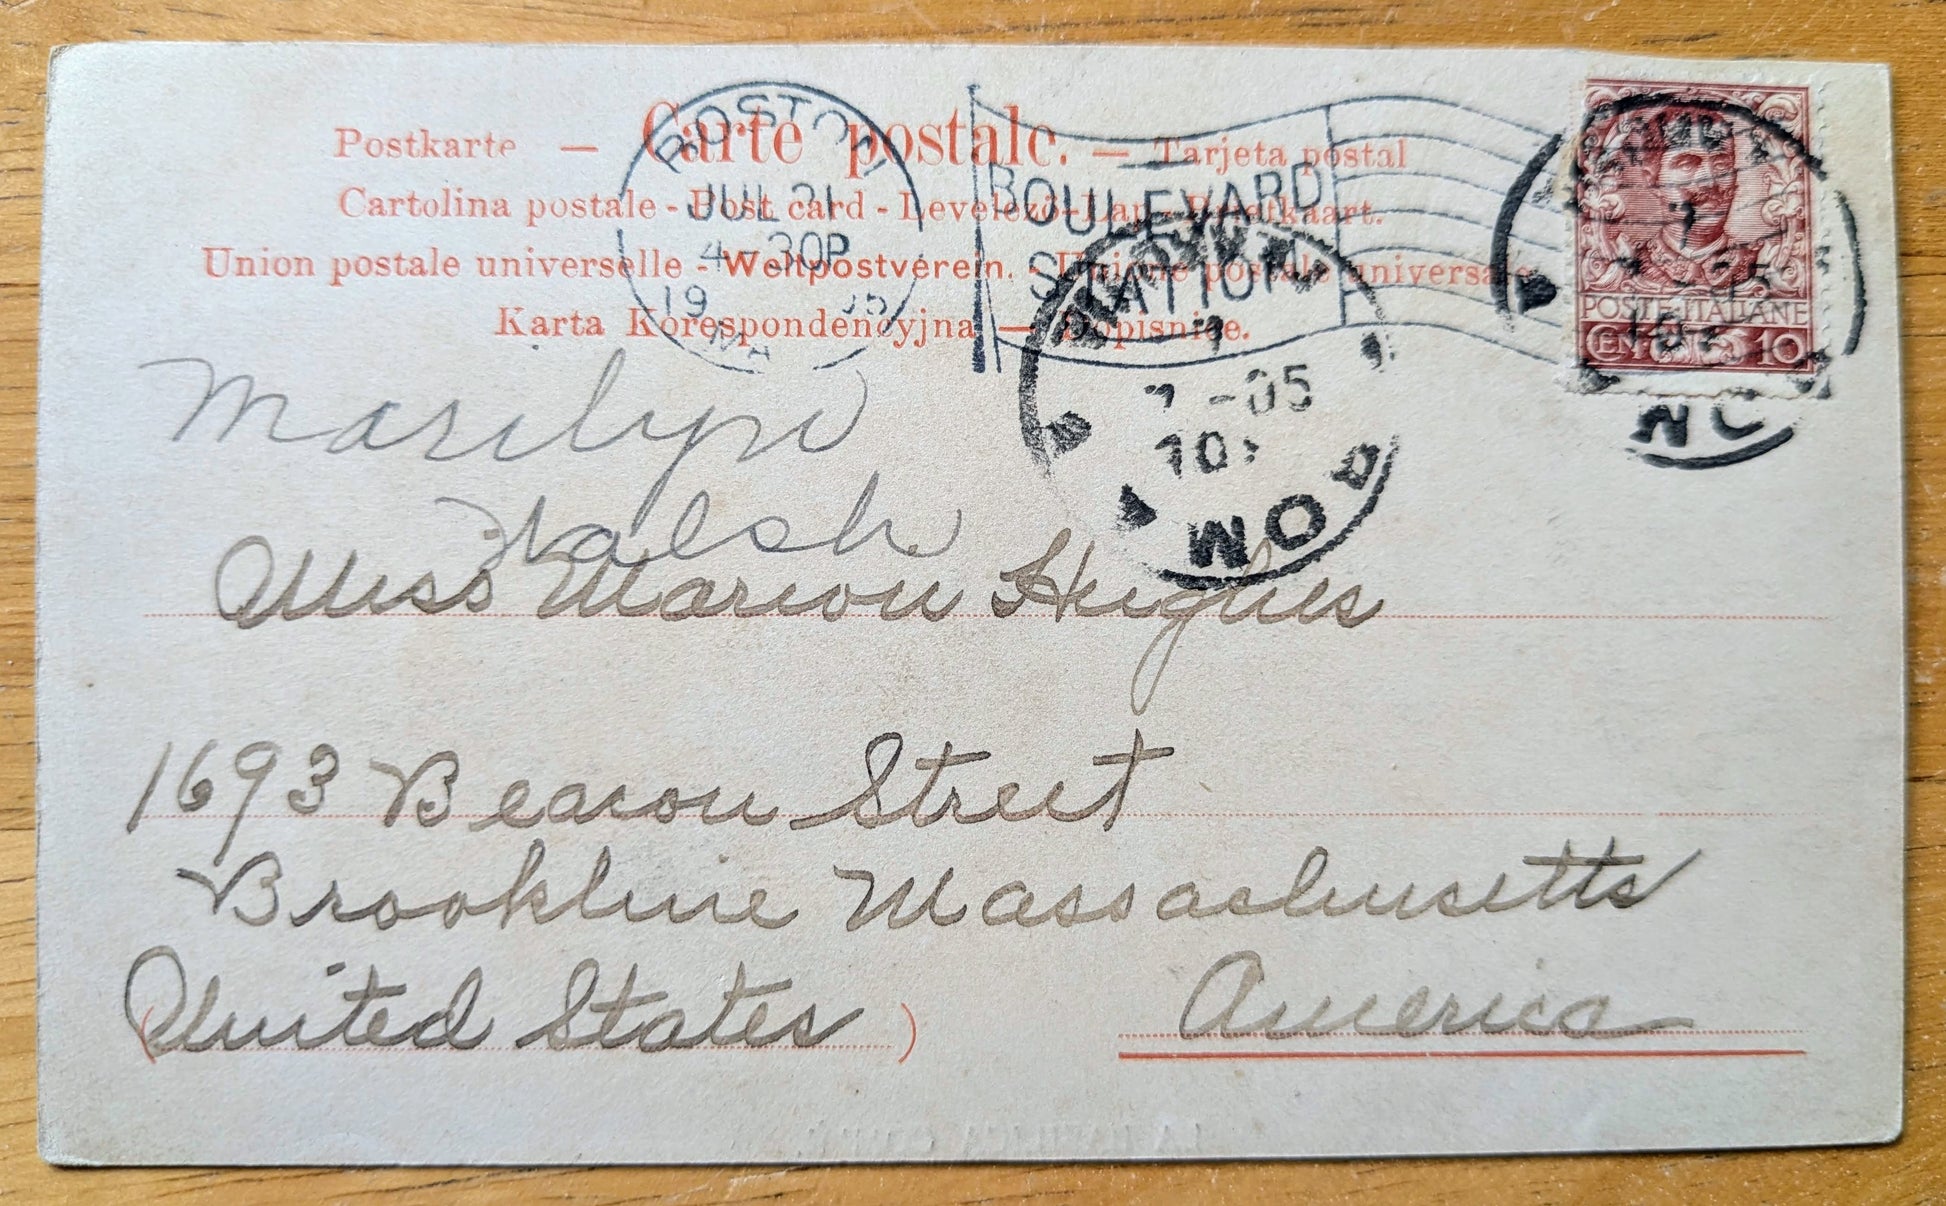 Postkarte — Carte postale. — Tarjeta postal
Cartolina postale - Post card - Levelező-Lap - Briefkaart.
Union postale universelle - Weltpostverein. - Unione postale universale
Karta Korespondencyjna — Dopisnice.
BOSTON
JUL 21
4-30P
1905
MA
BOULEVARD
STATION
7 -05
ROM
POSTE ITALIANE
CENT 10
Marilyn
Walsh
Miss Marion Hughes
1693 Beacon Street
Brookline Massachusetts
(United States)
America